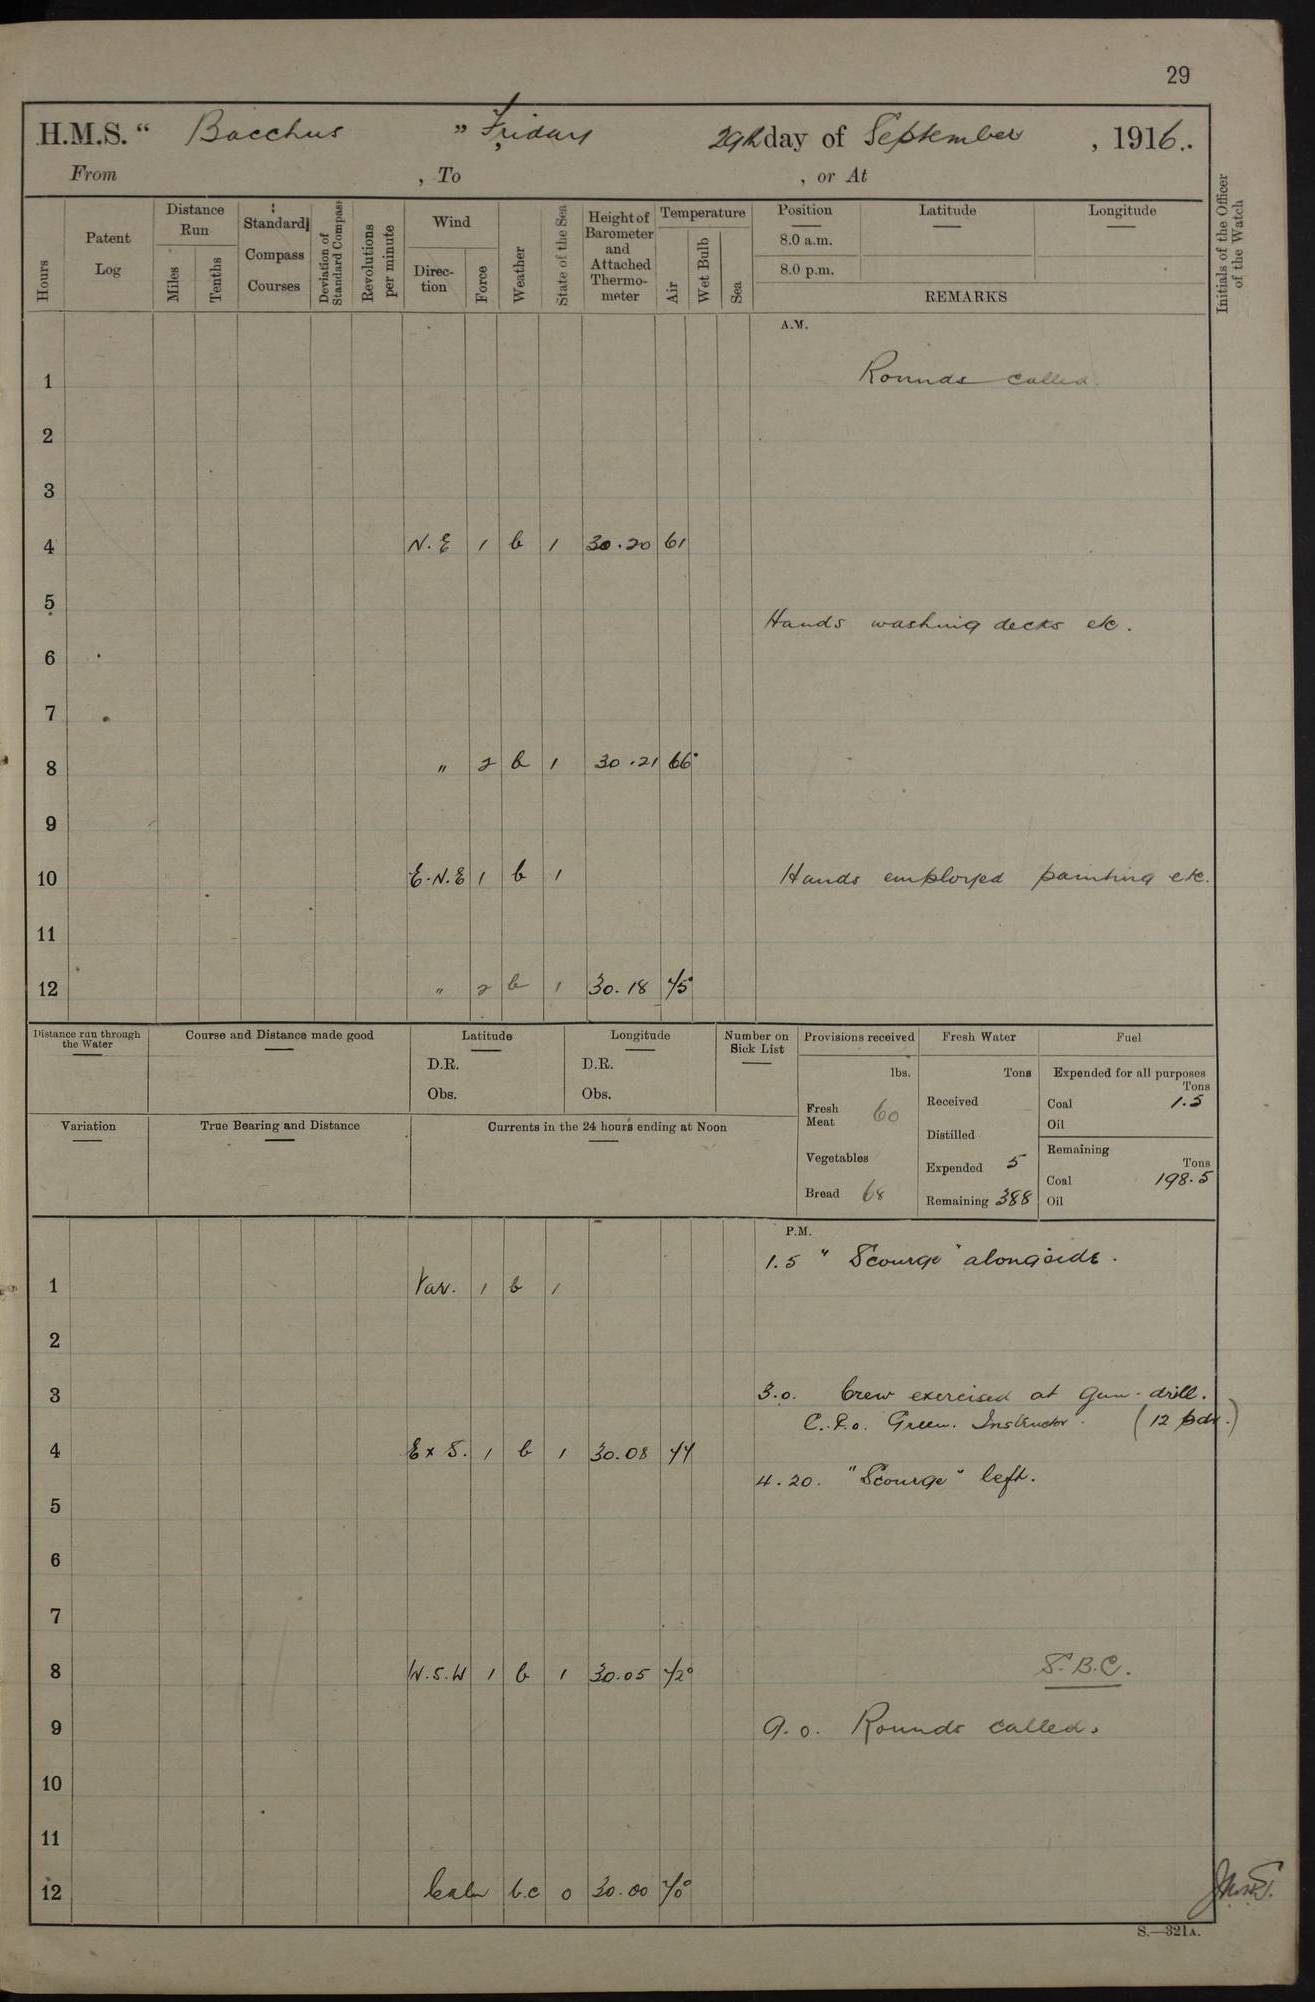 29
H.M.S. " Bacchus " Friday 29th day of September, 1916.
From , To , or At
Hours
Patent Log
Distance Run
Miles
Tenths
Standard Compass Courses
Deviation of Standard Compass
Revolutions per minute
Wind
Direc-tion
Force
Weather
State of the Sea
Height of Barometer and Attached Thermo-meter
Temperature
Air
Wet Bulb
Sea
Position
Latitude
Longitude
8.0 a.m.
8.0 p.m.
REMARKS
Initials of the Officer of the Watch
A.M.
1 Rounds called.
2
3
4 N.E 1 b 1 30.20 61
5 Hands washing decks etc.
6
7
8 " 2 b 1 30.21 66°
9
10 E.N.E 1 b 1 Hands employed painting etc.
11
12 " 2 b 1 30.18 75°
Distance run through the Water
Course and Distance made good
Latitude
D.R.
Obs.
Longitude
D.R.
Obs.
Number on Sick List
Provisions received
lbs.
Fresh Meat 60
Vegetables
Bread 68
Fresh Water
Tons
Received
Distilled
Expended 5
Remaining 388
Fuel
Expended for all purposes
Tons
Coal 1.5
Oil
Remaining
Tons
Coal 198.5
Oil
Variation
True Bearing and Distance
Currents in the 24 hours ending at Noon
P.M.
1.5 "Scourge" alongside.
1 Var. 1 b 1
2
3 3.0. Crew exercised at gun-drill.
C.P.O. Green. Instructor. (12 pdr.)
4 E x S. 1 b 1 30.08 77
4.20. "Scourge" left.
5
6
7
8 W.S.W 1 b 1 30.05 72° S.B.C.
9 9.0. Rounds called.
10
11
12 Calm b.c 0 30.00 70°
S.—321A.